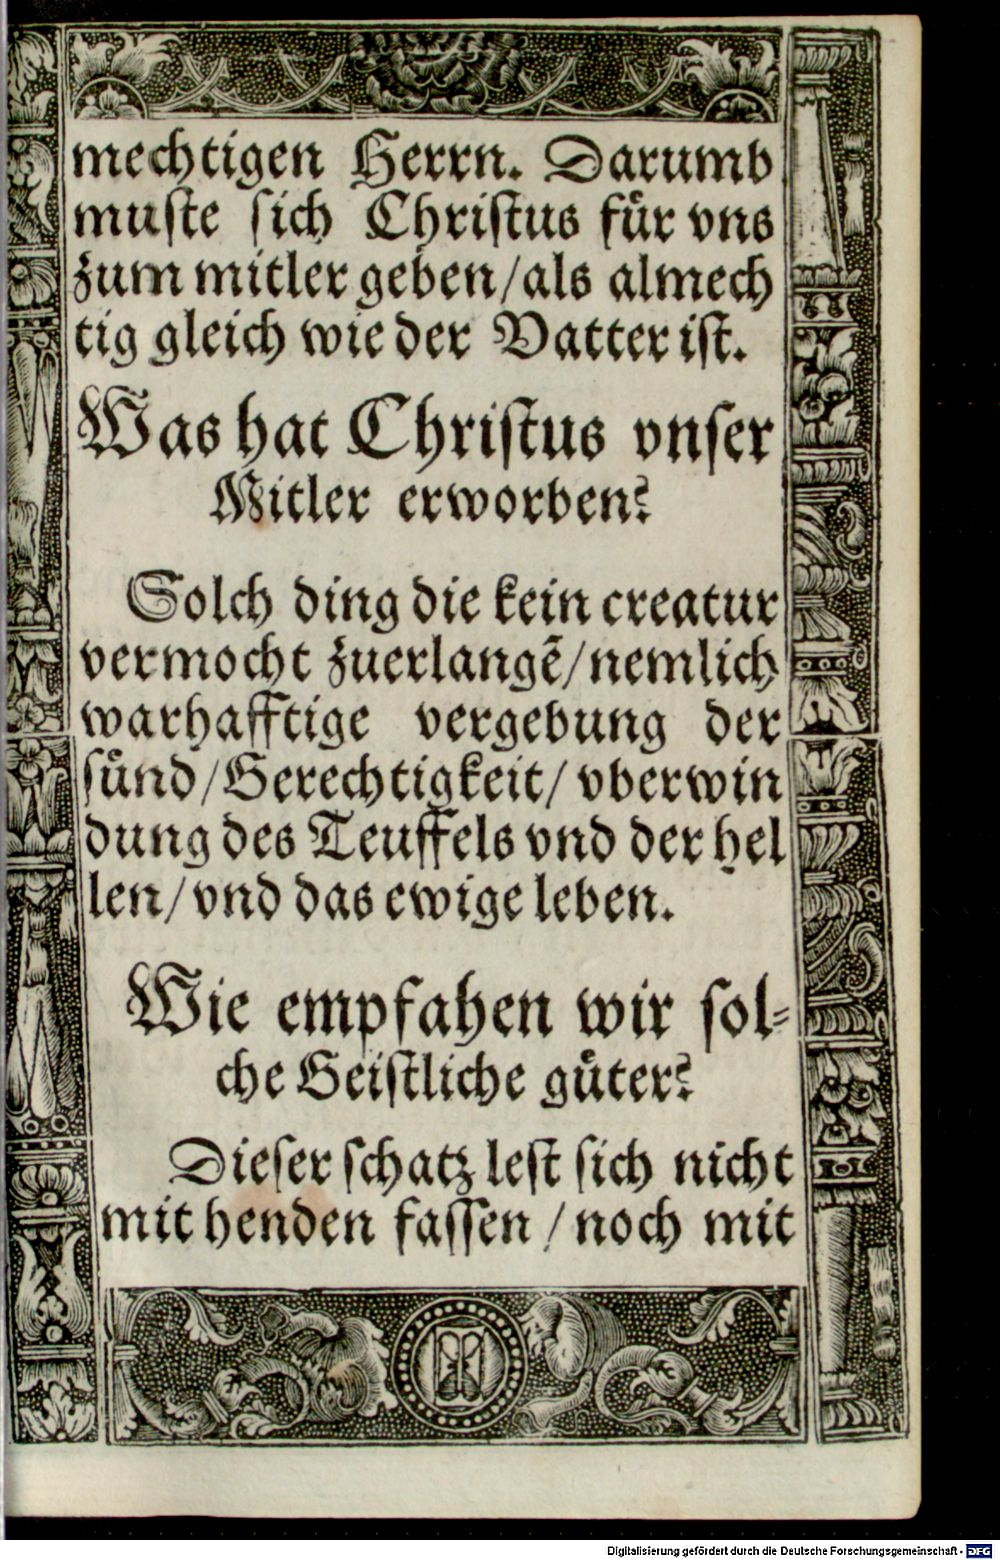 mechtigen Herrn. Darumb
muste sich Christus für vns
zum mitler geben/als almech
tig gleich wie der Vatter ist.
Was hat Christus vnser
Mitler erworben?
Solch ding die kein creatur
vermocht zuerlangẽ/nemlich
warhafftige vergebung der
sünd/Gerechtigkeit/ vberwin
dung des Teuffels vnd der hel
len/vnd das ewige leben.
Wie empfahen wir sol-
che Geistliche güter?
Dieser schatz lest sich nicht
mit henden fassen/noch mit
Digitalisierung gefördert durch die Deutsche Forschungsgemeinschaft - DFG